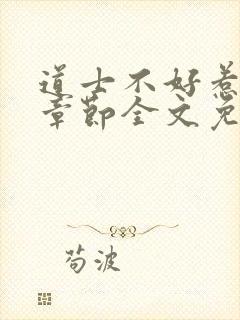 道士不好惹
章节全文免
苟波